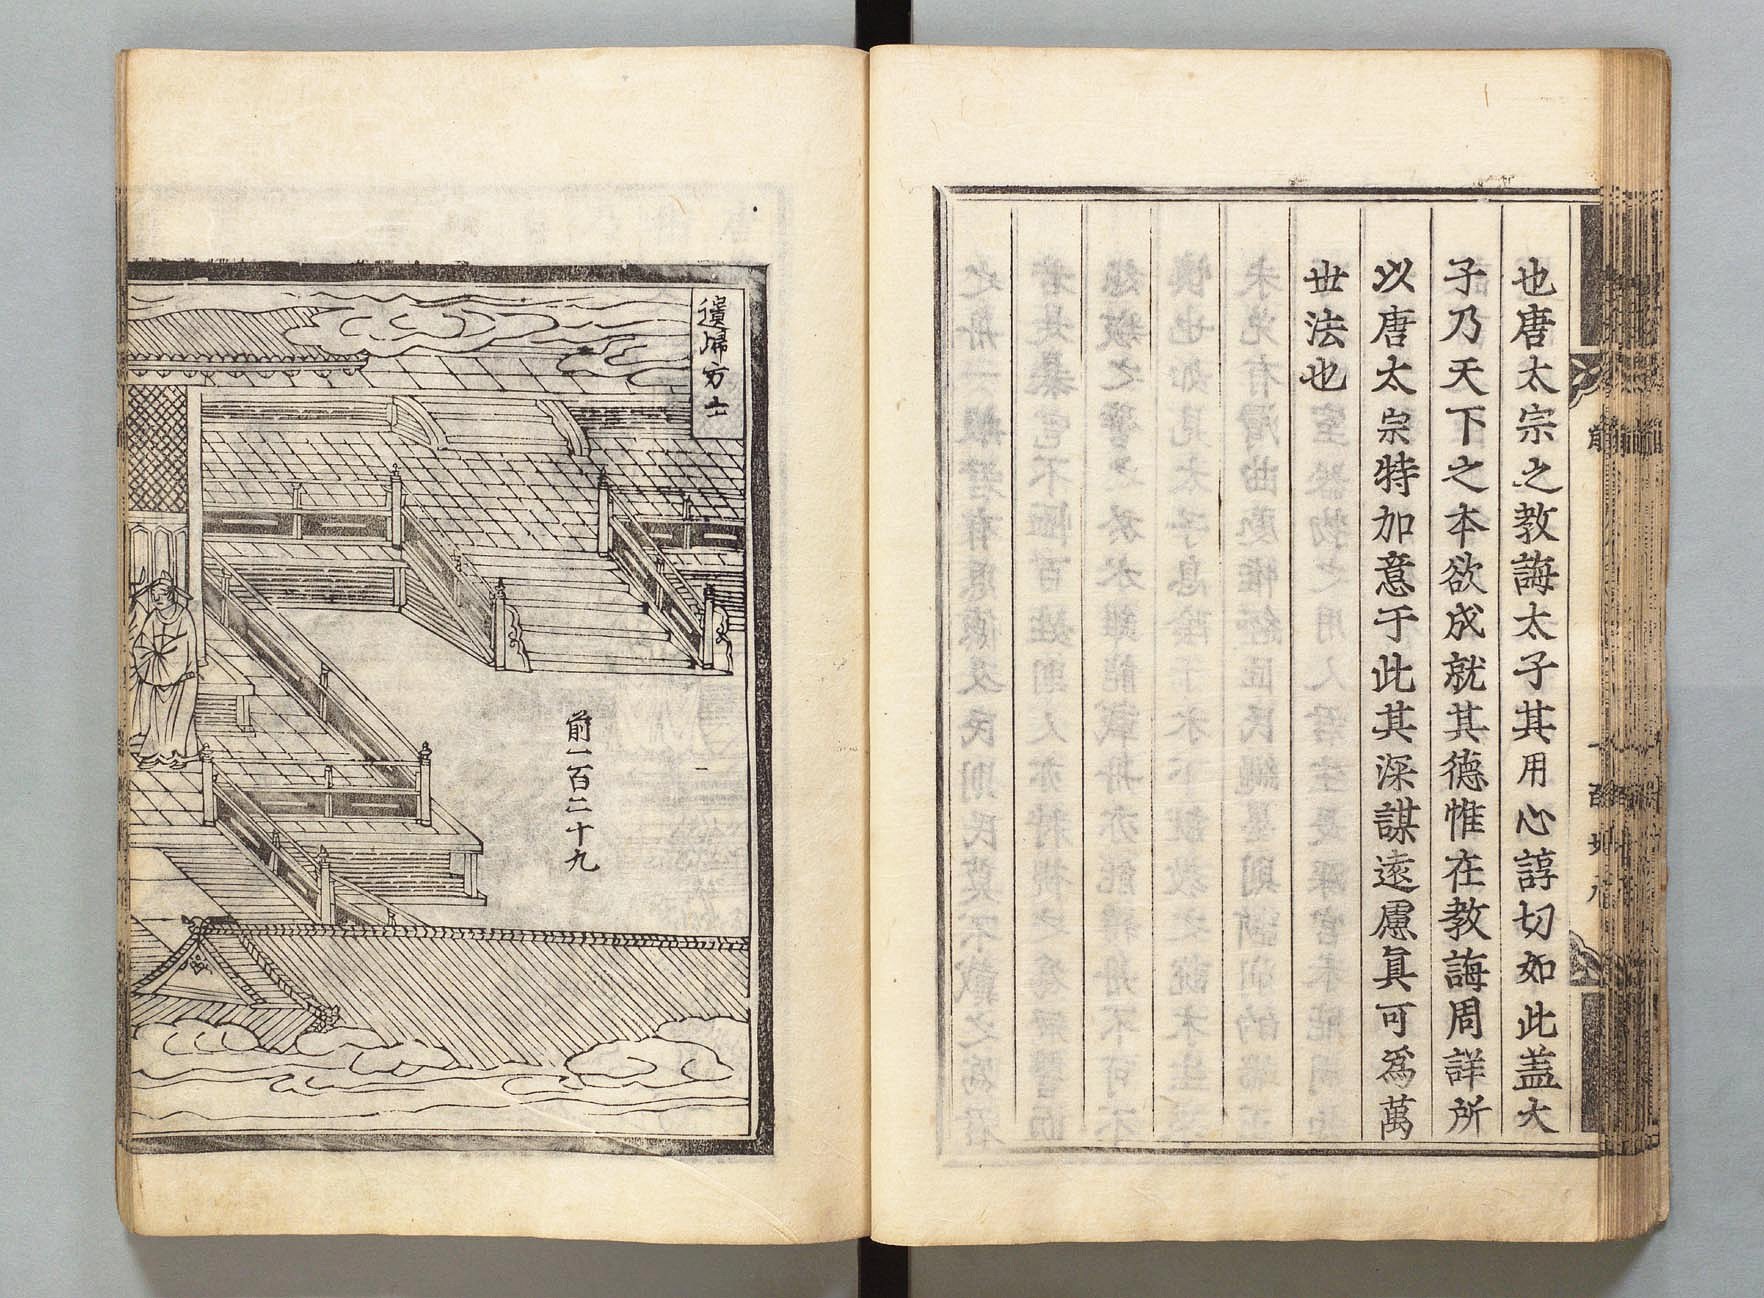 也唐太宗之教誨太子其用心諄切如此盖太
子乃天下之本欲成就其德惟在教誨周詳所
以唐太宗特加意于此其深謀遠慮真可為萬
世法也
遣歸方士
前一百二十九